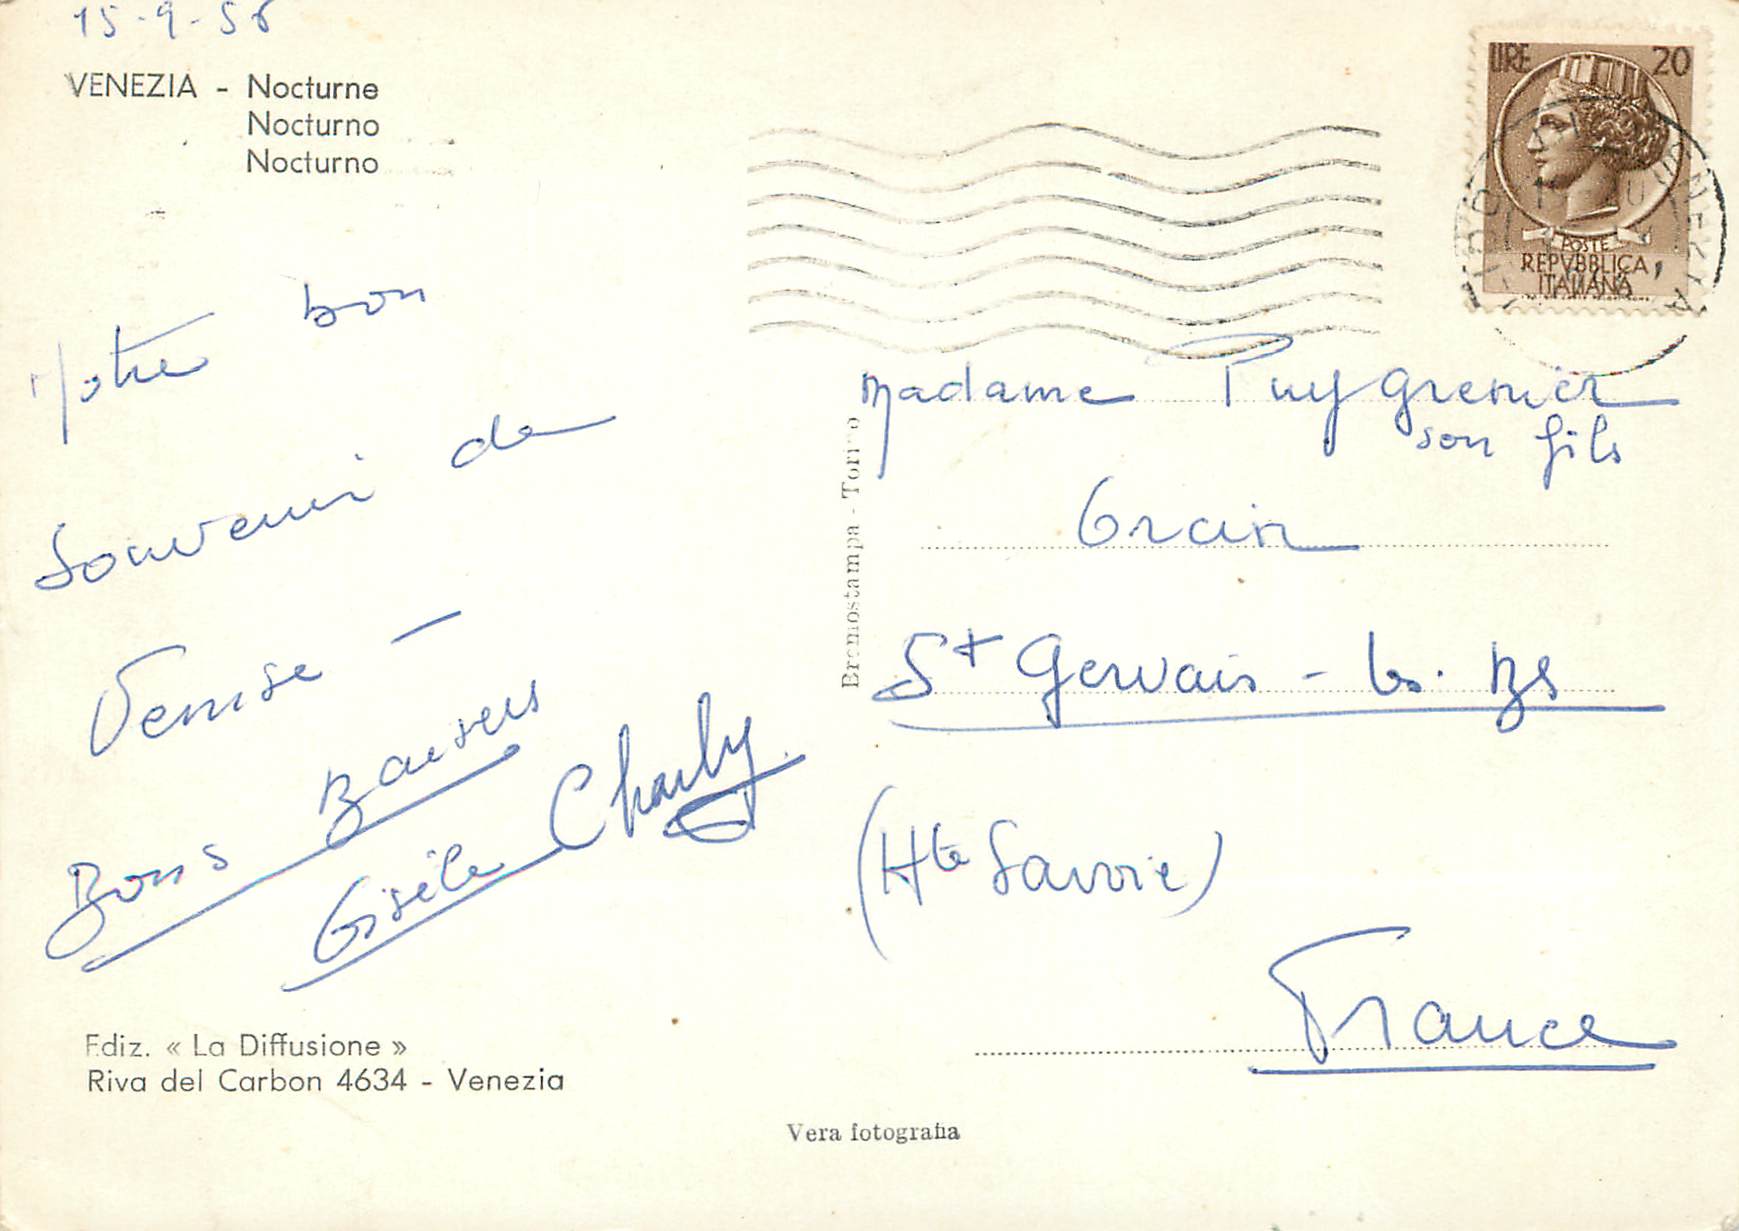 15-9-56
VENEZIA - Nocturne
Nocturno
Nocturno
Notre bon
Souvenir de
Venise -
Bons Baisers
Gisèle Charly
Ediz. « La Diffusione »
Riva del Carbon 4634 - Venezia
Bromostampa - Torino
Vera fotografia
LIRE 20
POSTE
REPVBBLICA
ITALIANA
VENEZIA
Madame Puygrenier
son fils
St Gervais - les. Bs
(Hte Savoie)
France